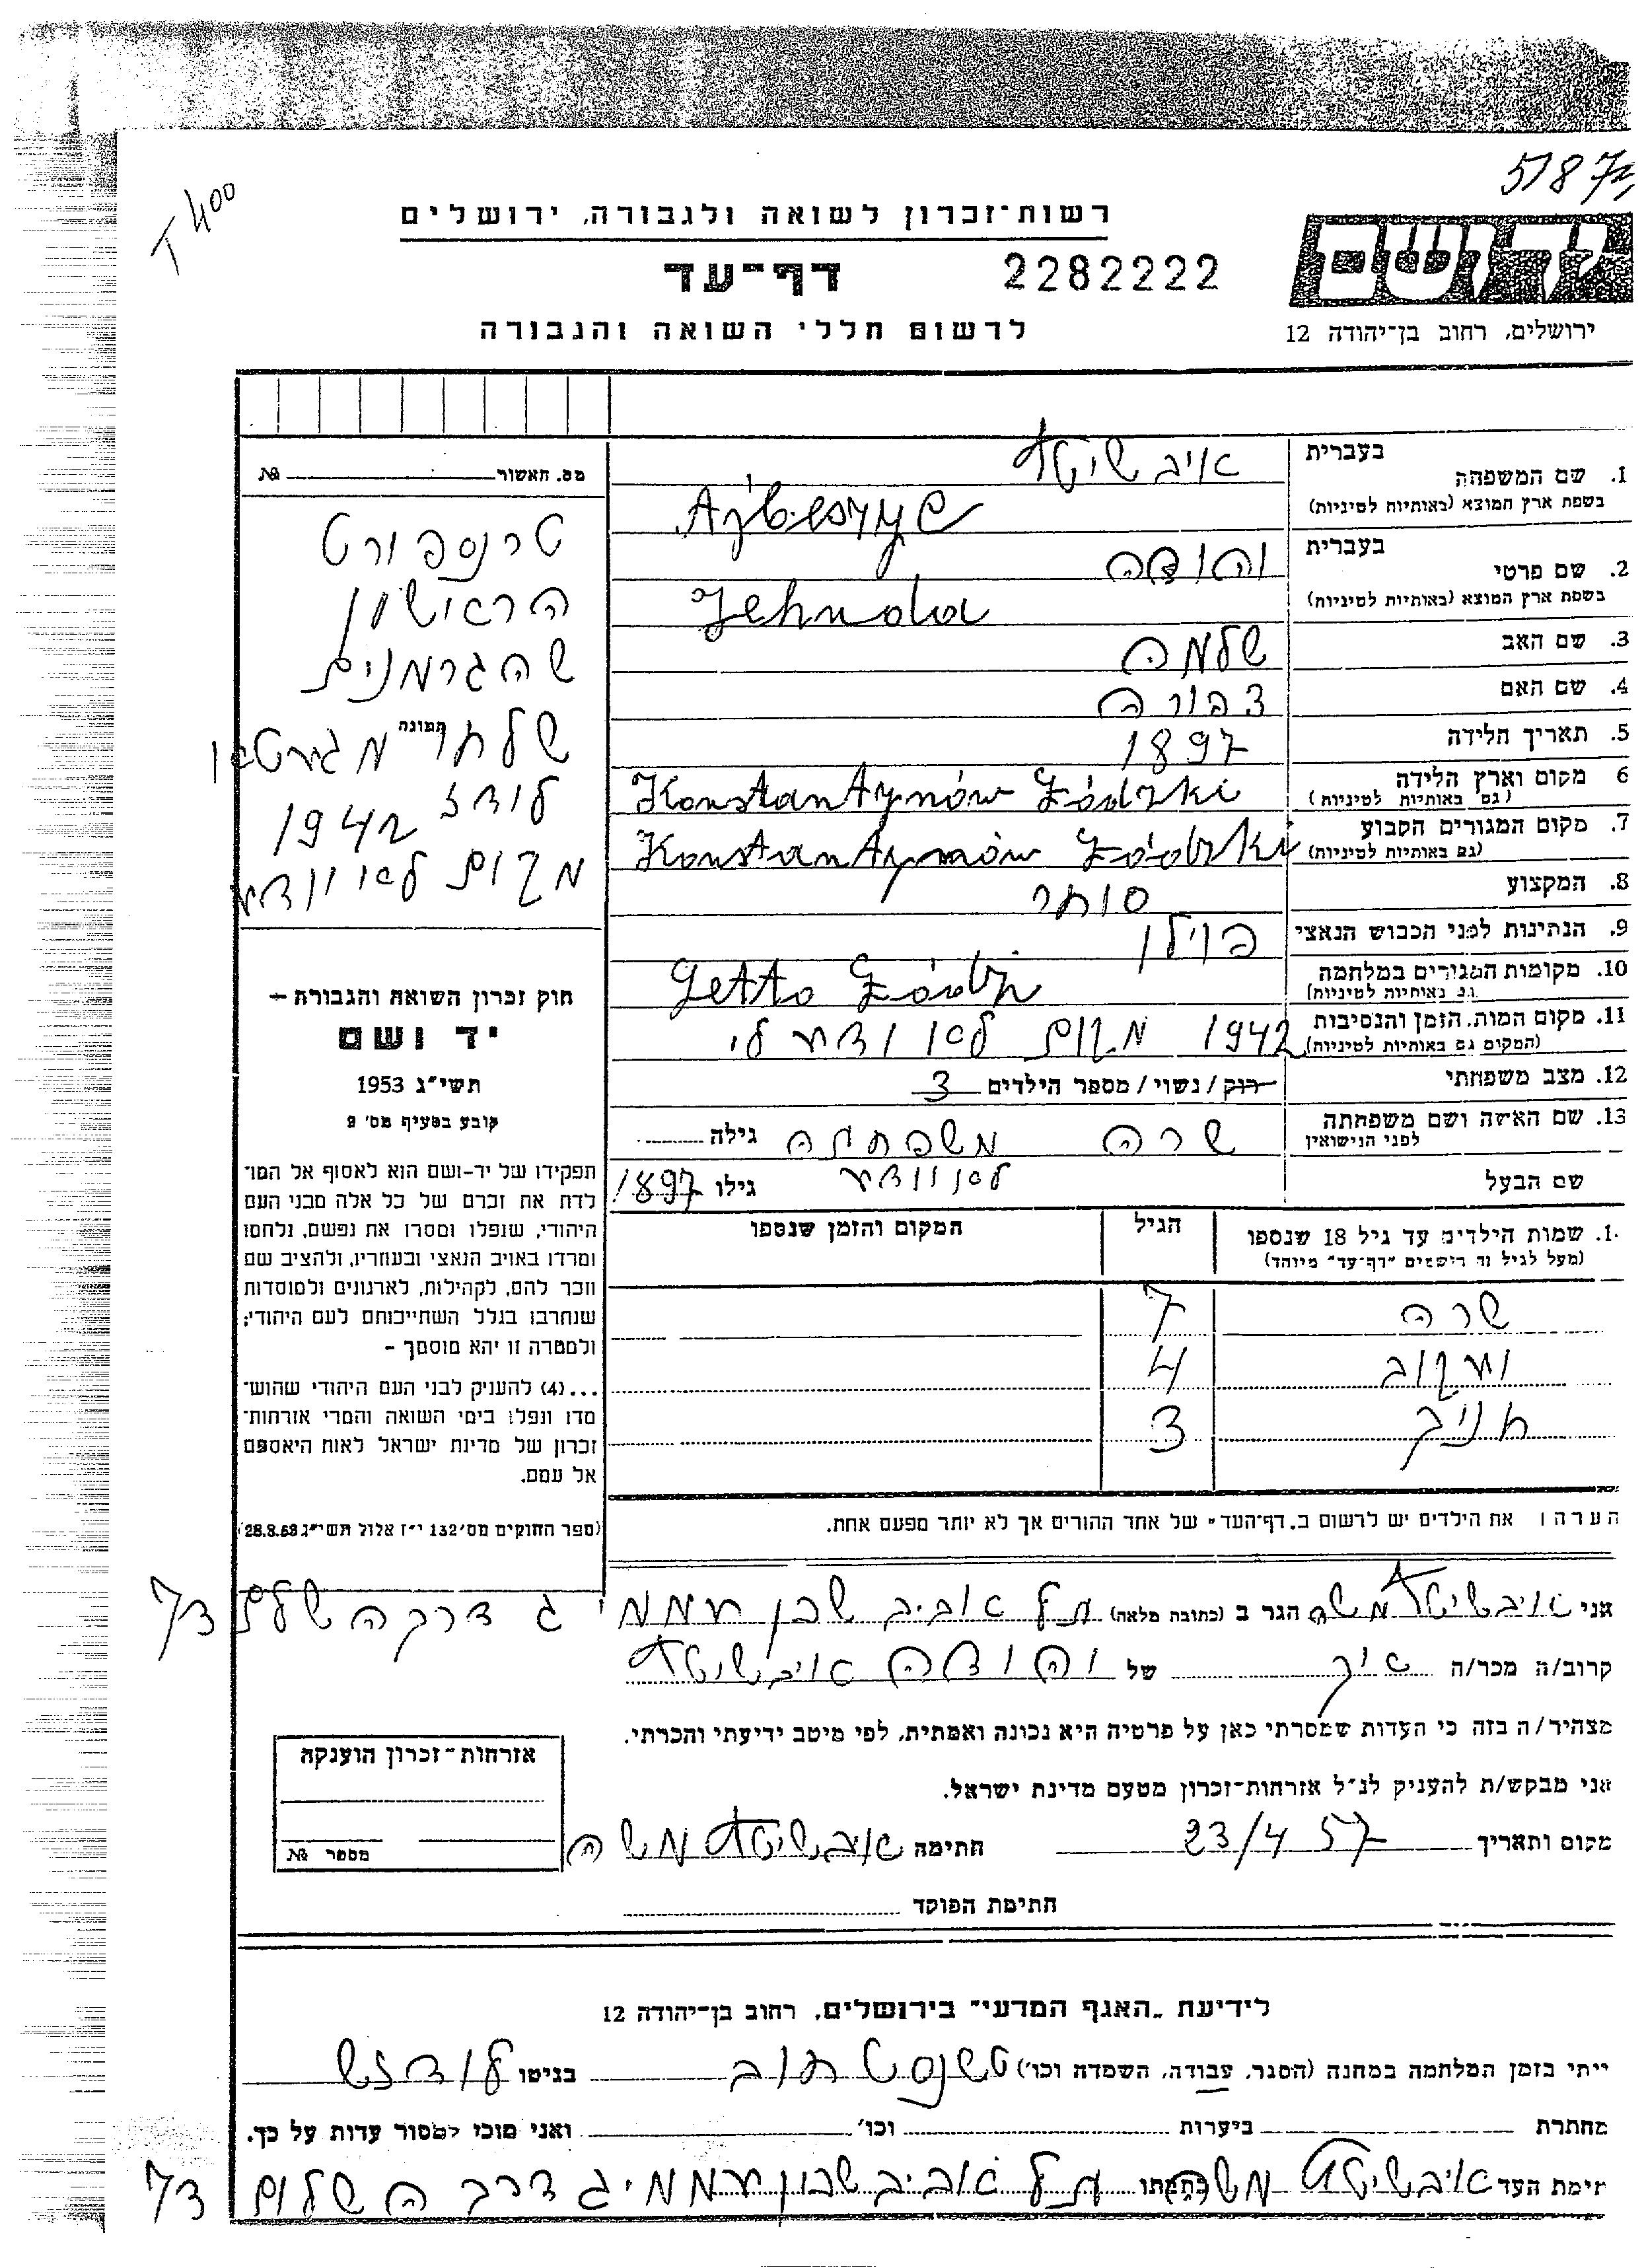 5187
T 400
רשות־זכרון לשואה ולגבורה, ירושלים
ידושם
דף־עד
2282222
לרשום חללי השואה והגבורה
ירושלים, רחוב בן־יהודה 12
מס. האשור №
טרנספורט
הראישון
שהגרמנים
תמונה
שלחו מגיטאו
לודז 1942
מקום לאו יודע
חוק זכרון השואה והגבורה –
יד ושם
תשי״ג 1953
קובע בסעיף מס׳ 2
תפקידו של יד-ושם הוא לאסוף אל המו־
לדת את זכרם של כל אלה מבני העם
היהודי, שנפלו ומסרו את נפשם, נלחמו
ומרדו באויב הנאצי ובעוזריו, ולהציב שם
וזכר להם, לקהילות, לארגונים ולמוסדות
שנחרבו בגלל השתייכותם לעם היהודי;
ולמטרה זו יהא מוסמך –
...(4) להעניק לבני העם היהודי שהוש־
מדו ונפלו בימי השואה והמרי אזרחות־
זכרון של מדינת ישראל לאות היאספם
אל עמם.
(ספר החוקים מס׳ 132 י״ז אלול תשי״ג 28.8.53)
1. שם המשפחה בעברית אויבשיטץ
בשפת ארץ המוצא (באותיות לטיניות) Ajbeszyc
2. שם פרטי בעברית יהודה
בשפת ארץ המוצא (באותיות לטיניות) Jehuda
3. שם האב שלמה
4. שם האם צפורה
5. תאריך הלידה 1897
6 מקום וארץ הלידה (גם באותיות לטיניות) Konstantynów Łódzki
7. מקום המגורים הקבוע (גם באותיות לטיניות) Konstantynów Łódzki
8. המקצוע סוחר
9. הנתינות לפני הכבוש הנאצי פוילן
10. מקומות המגורים במלחמה (גם באותיות לטיניות) Getto Łódzi
11. מקום המות, הזמן והנסיבות (המקום גם באותיות לטיניות) 1942 מקום לאו ודע לי
12. מצב משפחתי רווק / נשוי / מספר הילדים 3
13. שם האישה ושם משפחתה לפני הנישואין שרה משפחתה גילה
שם הבעל לאו יודע גילו 1897
1. שמות הילדים עד גיל 18 שנספו הגיל המקום והזמן שנספו
(מעל לגיל זה רישמים ״דף־עד״ מיוחד)
שרה 7
יעקוב 4
חניך 3
הערה: את הילדים יש לרשום ב״דף־העד״ של אחד ההורים אך לא יותר מפעם אחת.
אני אויבשיטץ משה הגר ב (כתובת מלאה) תל אביב שכון עממי ג דרך השלם 7/3
קרוב/ה מכר/ה אח של יהודה אויבשיטץ
מצהיר/ה בזה כי העדות שמסרתי כאן על פרטיה היא נכונה ואמתית, לפי מיטב ידיעתי והכרתי.
אני מבקש/ת להעניק לנ״ל אזרחות־זכרון מטעם מדינת ישראל.
מקום ותאריך 23/4 57 חתימה אויבשיטץ משה
חתימת הפוקד
אזרחות־זכרון הוענקה
מספר №
לידיעת ״האגף המדעי״ בירושלים, רחוב בן־יהודה 12
ייתי בזמן המלחמה במחנה (הסגר, עבודה, השמדה וכו׳) טשנסטחוב בגיטו לודזש
מחתרת ביערות וכו׳ ואני מוכן למסור עדות על כך.
תימת העד אויבשיטץ משה כתבתו תל אביב שכון עממי ג דרך השלום 7/3